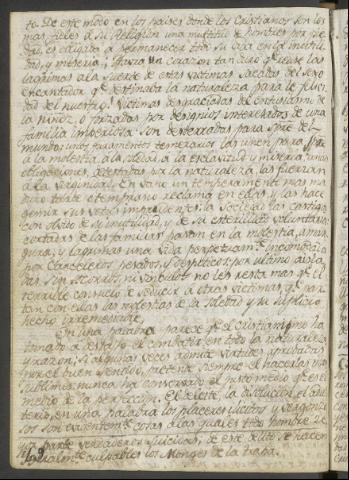 te. De este modo en los paises donde los Cristianos son los
mas fieles á su Religion una multitud de hombres por pie
dad, es obligada a permanecer toda su vida en la inutili
dad, y miseria; Habra un corazon tan duro qe. niegue las
lagrimas a la suerte de estas victimas sacadas del sexo
encantador qe. destinaba la naturaleza para la felici
dad del nuestro? Victimas desgraciadas del entusiasmo de
la niñez, o forzadas por designios interesados de una
familia imperiosa son desterradas para spre. del
mundo: unos juramentos temerarios las unen para spre
a la molestia, a la soledad, a la esclavitud y miseria, unas
obligaciones, detestadas por la naturaleza, las fuerzan
a la virginidad. En vano un temperamento mas ma
duro tarde o temprano reclama en ellas, y las hace
gemir sus votos imprudentes, la sociedad las castiga
con olvido de su inutilidad, y de su esterilidad voluntaria:
cortadas de las familias pasan en la molestia, amar
gura, y lagrimas una vida perpetuamte. incomodada
por Carceleros pesados, y despoticos: por ultimo aisla
das, sin socorros, ni vinculos no les resta mas qe. el
terrible consuelo de seducir a otras victimas qe. par
tan con ellas las molestias de la soledad y su suplicio
hecho irremediable.
En una palabra parece qe. el cristianismo ha
tomado a destajo el combatir en todo la naturaleza
y razon; si algunas veces admite virtudes aprobadas
por el buen sentido, pretende siempre el hacerlas mas
sublimes: nunca ha conservado el justo medio qe. es el
medio de la perfeccion. El deleite, la disolucion, el adul
terio, en una palabra los placeres ilicitos y vergonzo
sos son evidentemte. cosas a las quales todo hombre
parte verdaderos suicidas; de este delito se hacen
culpables los Monges de la trapa.